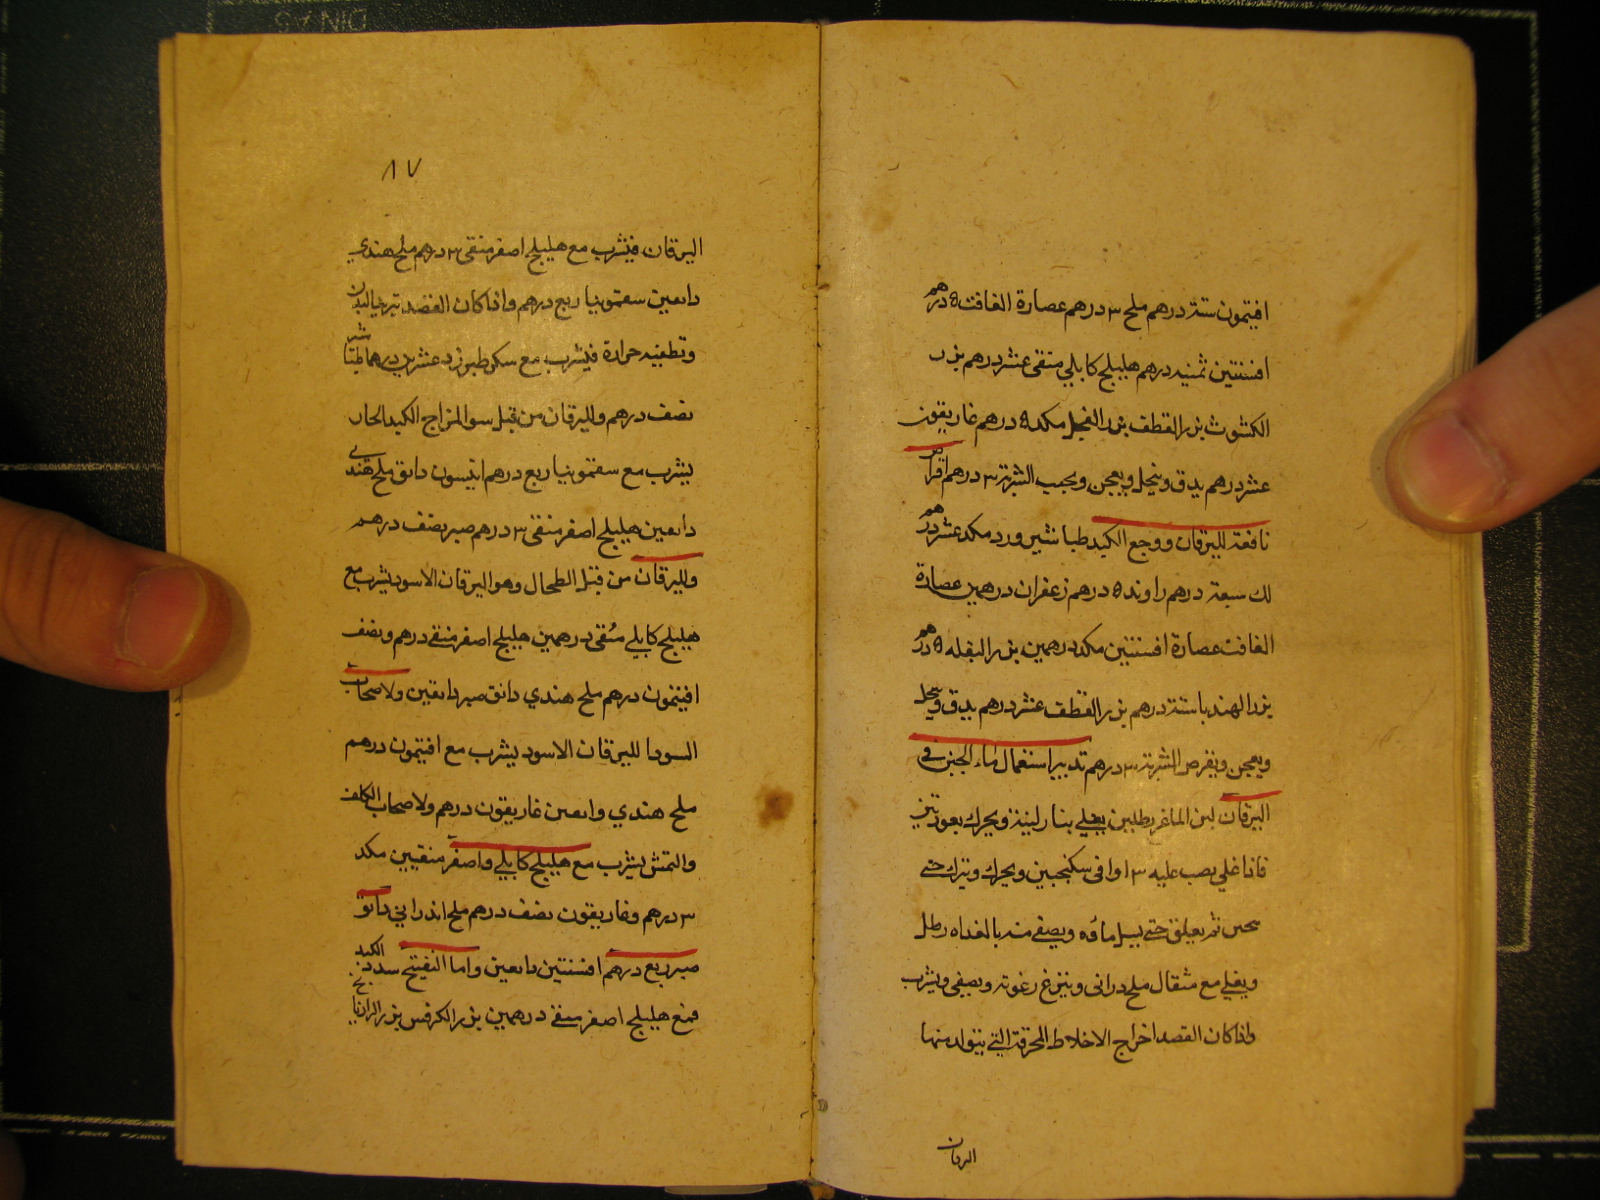 افتيمون ستة درهم ملح ٣ درهم عصارة الغافت ٥ درهم
افسنتين ثمنيه درهم هليلج كابلي منقى عشر درهم بزر
الكشوث بزر القطف بزر الفجل مكد ٥ درهم غاريقون
عشر درهم يدق وينخل ويعجن ويحبب الشربة ٣ درهم اقراص
نافعة لليرقان ووجع الكبد طباشير ورد مكد عشر درهم
لك سبعة درهم راوند ٥ درهم زعفران درهمين عصارة
الغافت عصارة افسنتين مكد درهمين بزر البقله ٥ درهم
بزر الهندبا ستة درهم بزر القطف عشر درهم يدق وينخل
ويعجن ويقرص الشربة ٣ درهم تدبير استعمال ماء الجبن في
اليرقان لبن الماعز رطلين يغلي بنار لينة ويحرك بعود تين
فاذا غلي يصب عليه ٣ اواقي سكنجبين ويحرك ويترك حتى
ثم يعلق حتى يسيل مائه ويصفى منه بالغداه رطل
ويغلي مع مثقال ملح دراني وينزع رغوته ويصفى ويشرب
واذا كان القصد اخراج الاخلاط المحرقة التي يتولد منها
اليرقان
٨٧
اليرقان فيشرب مع هليلج اصفر منقى ٣ درهم ملح هندي
دانقين سقمونيا ربع درهم واذا كان القصد تبريد البدن
وتطفئة حرارة فيشرب مع سكر طبرزد عشرين درهما طباشير
نصف درهم ولليرقان من قبل سو المزاج الكبد الحار
يشرب مع سقمونيا ربع درهم انيسون دانق ملح هندي
دانقين هليلج اصفر منقى ٣ درهم صبر نصف درهم
ولليرقان من قبل الطحال وهو اليرقان الاسود يشرب مع
هليلج كابلي منقى درهمين هليلج اصفر منقى درهم ونصف
افتيمون درهم ملح هندي دانق صبر دانقين ولاصحاب
السودا لليرقان الاسود يشرب مع افتيمون درهم
ملح هندي دانقين غاريقون درهم ولاصحاب الكلف
والنمش يشرب مع هليلج كابلي واصفر منقيين مكد
٣ درهم وغاريقون نصف درهم ملح اندراني دانق
صبر ربع درهم افسنتين دانقين واما التفتيح سدد الكبد
فمع هليلج اصفر منقى درهمين بزر الكرفس بزر الرازيانج